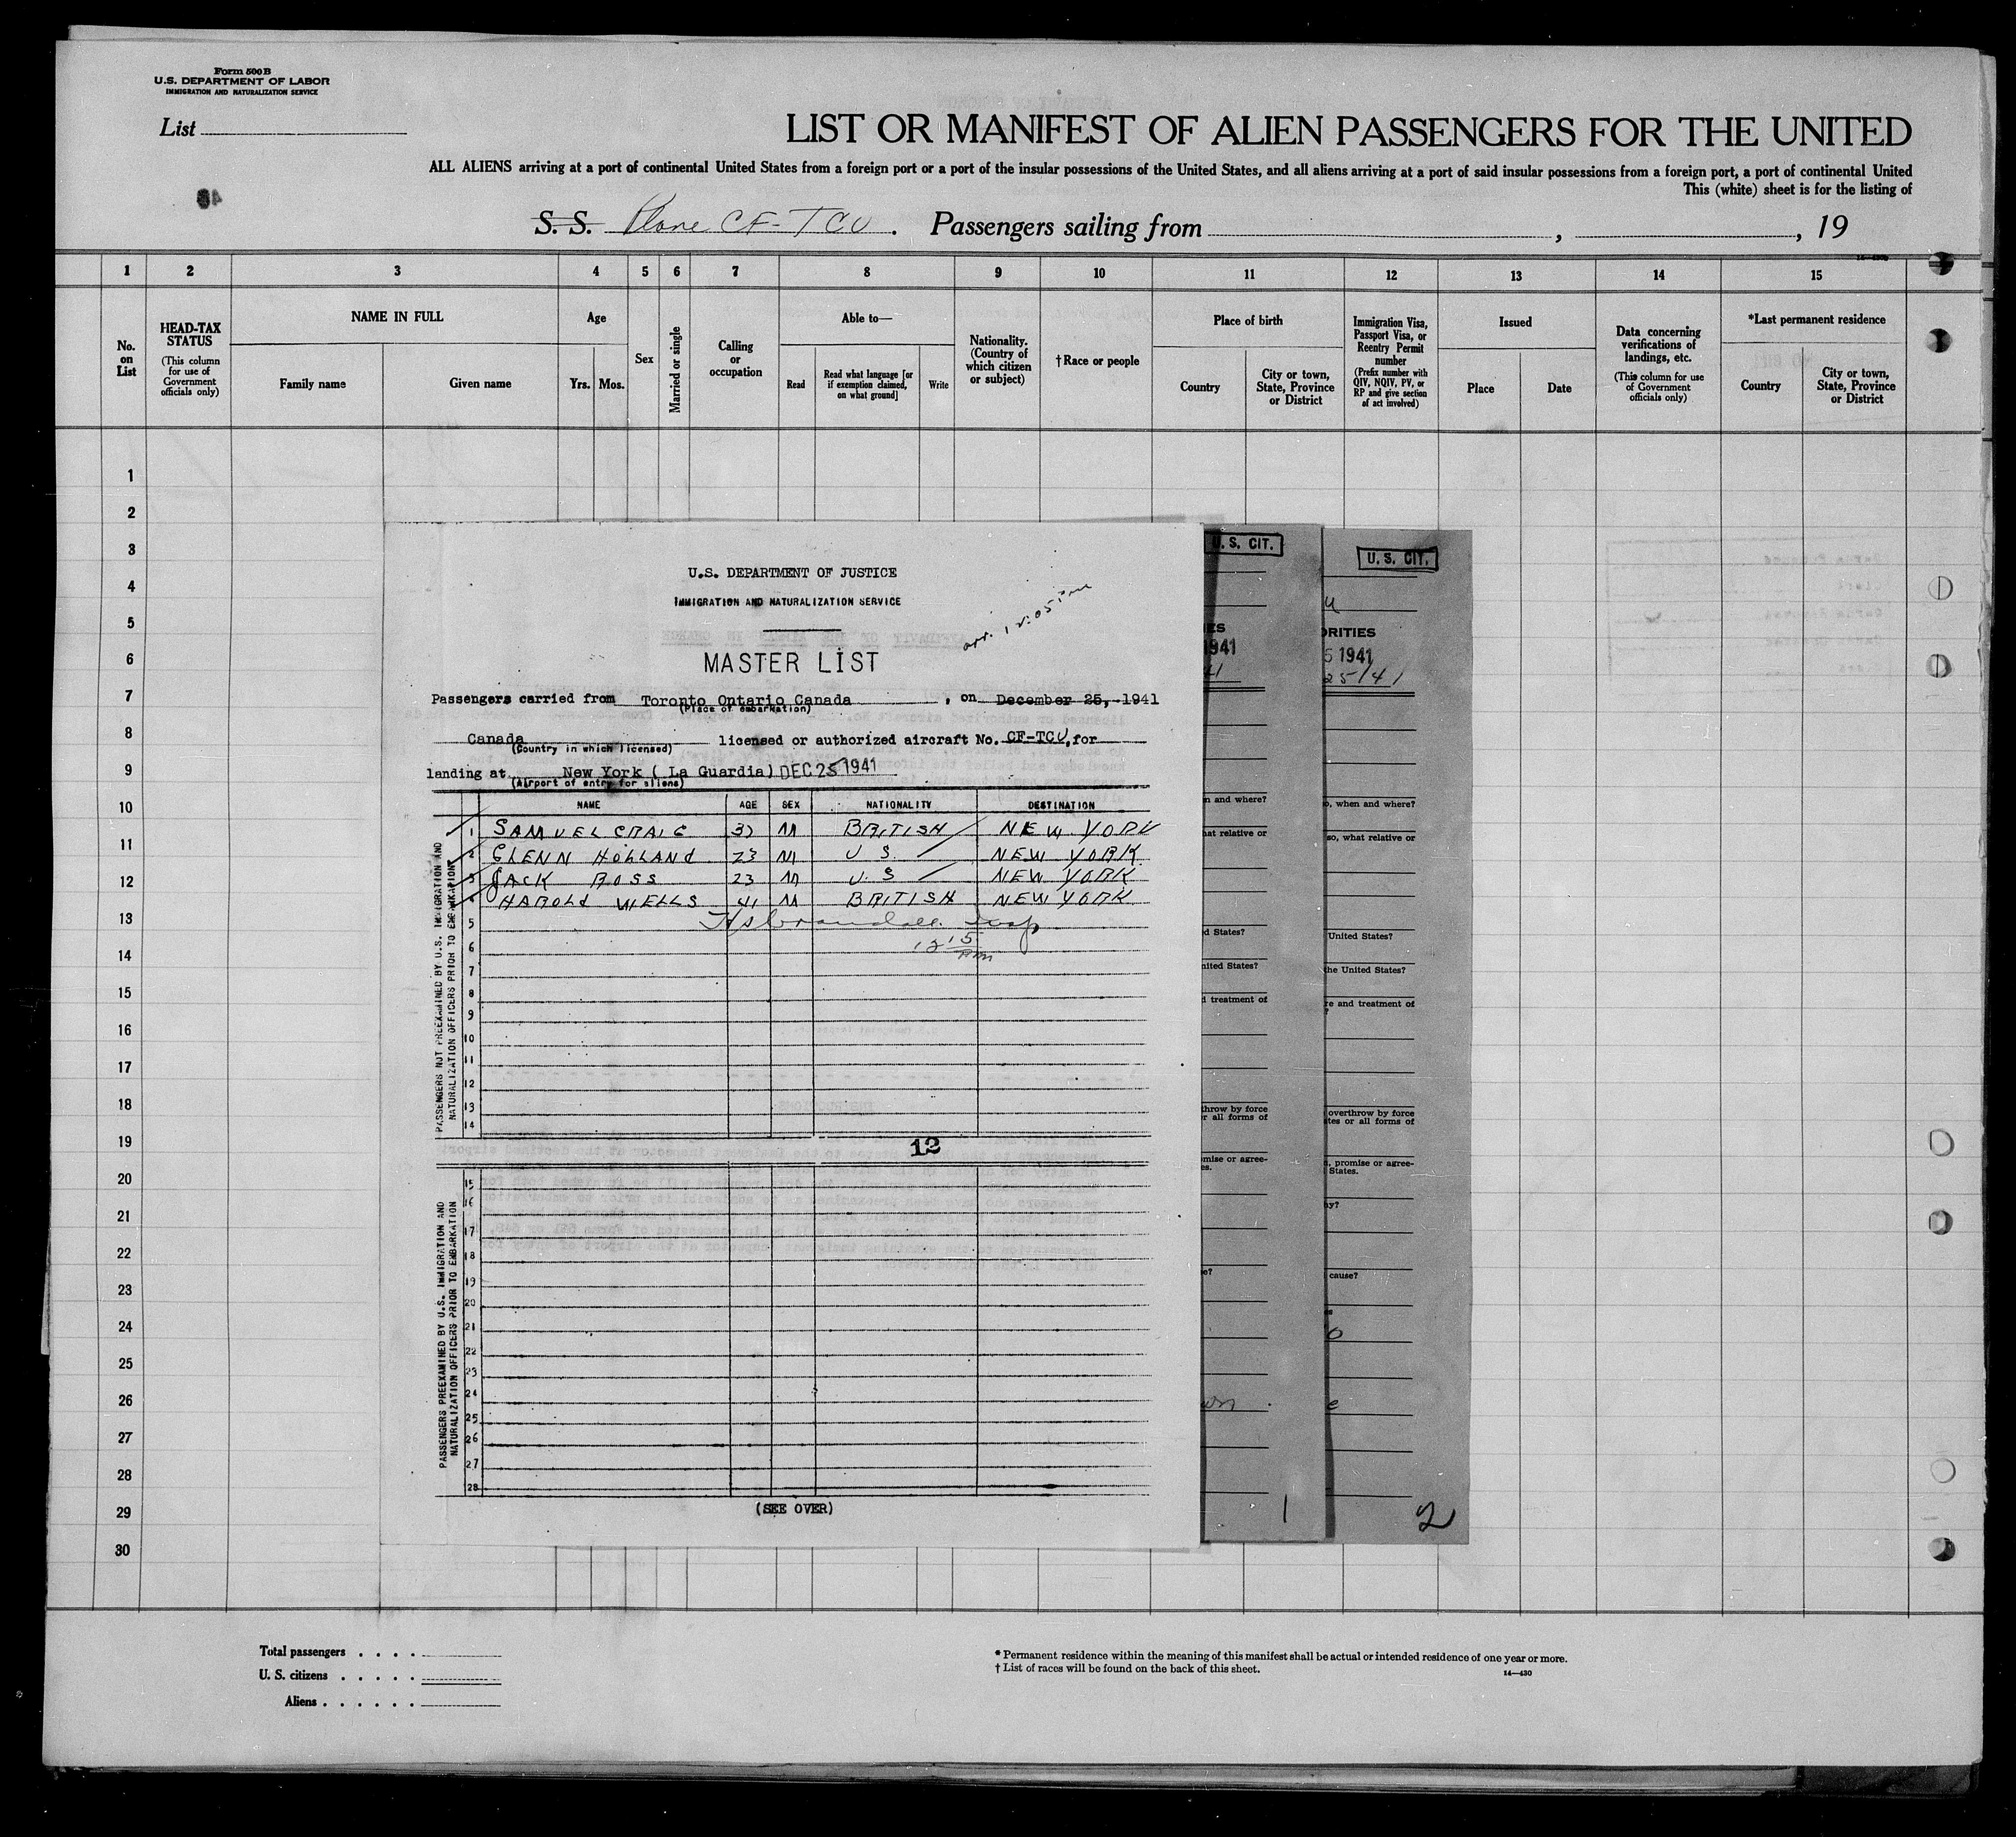 Form 500 B
U.S. DEPARTMENT OF LABOR
IMMIGRATION AND NATURALIZATION SERVICE
List
LIST OR MANIFEST OF ALIEN PASSENGERS FOR THE UNITED
ALL ALIENS arriving at a port of continental United States from a foreign port or a port of the insular possessions of the United States, and all aliens arriving at a port of said insular possessions from a foreign port, a port of continental United
This (white) sheet is for the listing of
S. S. Plane CF-TCU. Passengers sailing from , , 19
1 2 3 4 5 6 7 8 9 10 11 12 13 14 15
No. on List
HEAD-TAX STATUS
(This column for use of Government officials only)
NAME IN FULL
Family name
Given name
Age
Yrs.
Mos.
Sex
Married or single
Calling or occupation
Able to—
Read
Read what language [or if exemption claimed, on what ground]
Write
Nationality. (Country of which citizen or subject)
†Race or people
Place of birth
Country
City or town, State, Province or District
Immigration Visa, Passport Visa, or Reentry Permit number
(Prefix number with QIV, NQIV, PV, or RP and give section of act involved)
Issued
Place
Date
Data concerning verifications of landings, etc.
(This column for use of Government officials only)
*Last permanent residence
Country
City or town, State, Province or District
1
2
3
4
5
6
7
8
9
10
11
12
13
14
15
16
17
18
19
20
21
22
23
24
25
26
27
28
29
30
U.S. DEPARTMENT OF JUSTICE
IMMIGRATION AND NATURALIZATION SERVICE
arr. 12:05 PM
MASTER LIST
Passengers carried from Toronto Ontario Canada , on December 25, 1941
(Place of embarkation)
Canada licensed or authorized aircraft No. CF-TCU, for
(Country in which licensed)
landing at New York ( La Guardia) DEC 25 1941
(Airport of entry for aliens)
NAME AGE SEX NATIONALITY DESTINATION
PASSENGERS NOT PREEXAMINED BY U.S. IMMIGRATION AND NATURALIZATION OFFICERS PRIOR TO EMBARKATION
1 SAMUEL CRAIG M BRITISH NEW YORK
2 GLENN HOLLAND 23 M U S. NEW YORK
3 JACK ROSS 23 M U.S NEW YORK
4 HAROLD WELLS 41 M BRITISH NEW YORK
5
6 12 15 PM
7
8
9
10
11
12
13
14
12
PASSENGERS PREEXAMINED BY U.S. IMMIGRATION AND NATURALIZATION OFFICERS PRIOR TO EMBARKATION
15
16
17
18
19
20
21
22
23
24
25
26
27
28
(SEE OVER)
U. S. CIT.
1941
41
n and where?
hat relative or
d States?
nited States?
d treatment of
throw by force
r all forms of
mise or agree-
es.
e?
1
U. S. CIT.
ORITIES
5 1941
25/41
o, when and where?
so, what relative or
United States?
the United States?
re and treatment of
?
overthrow by force
tes or all forms of
, promise or agree-
States.
ny?
cause?
2
Total passengers . . . .
U. S. citizens . . . . .
Aliens . . . . . .
* Permanent residence within the meaning of this manifest shall be actual or intended residence of one year or more.
† List of races will be found on the back of this sheet.
14—430